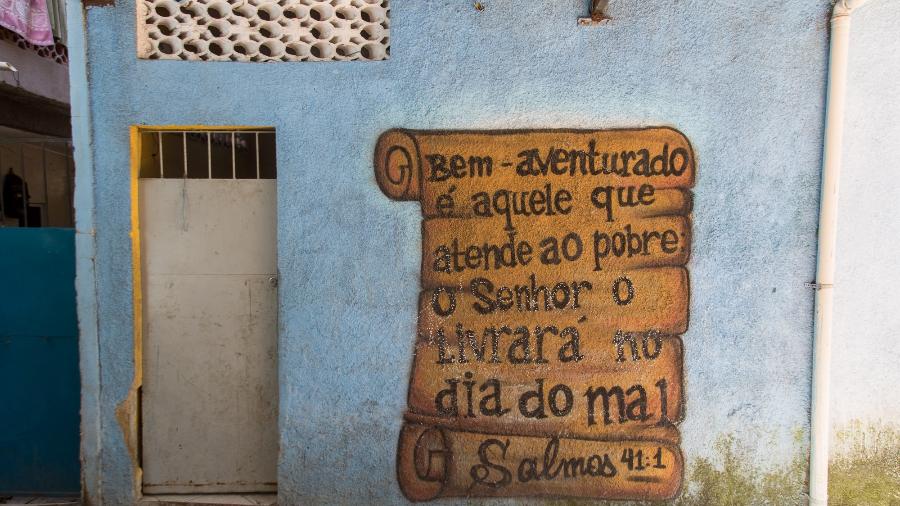 Bem-aventurado
é aquele que
atende ao pobre:
O Senhor o
Livrará no
dia do mal
Salmos 41:1